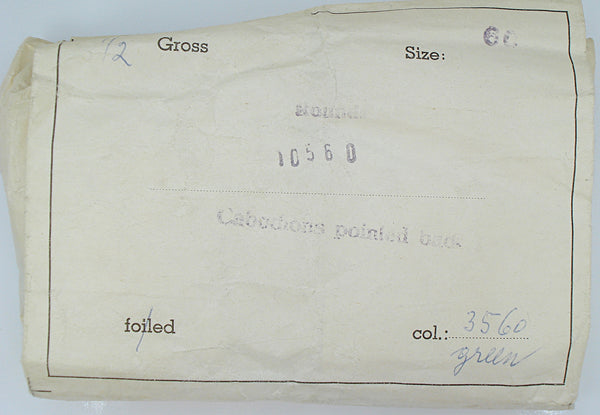 1/2 Gross
Size:
Rounds
10560
Cabochons pointed back
foiled
col.: 3560
green